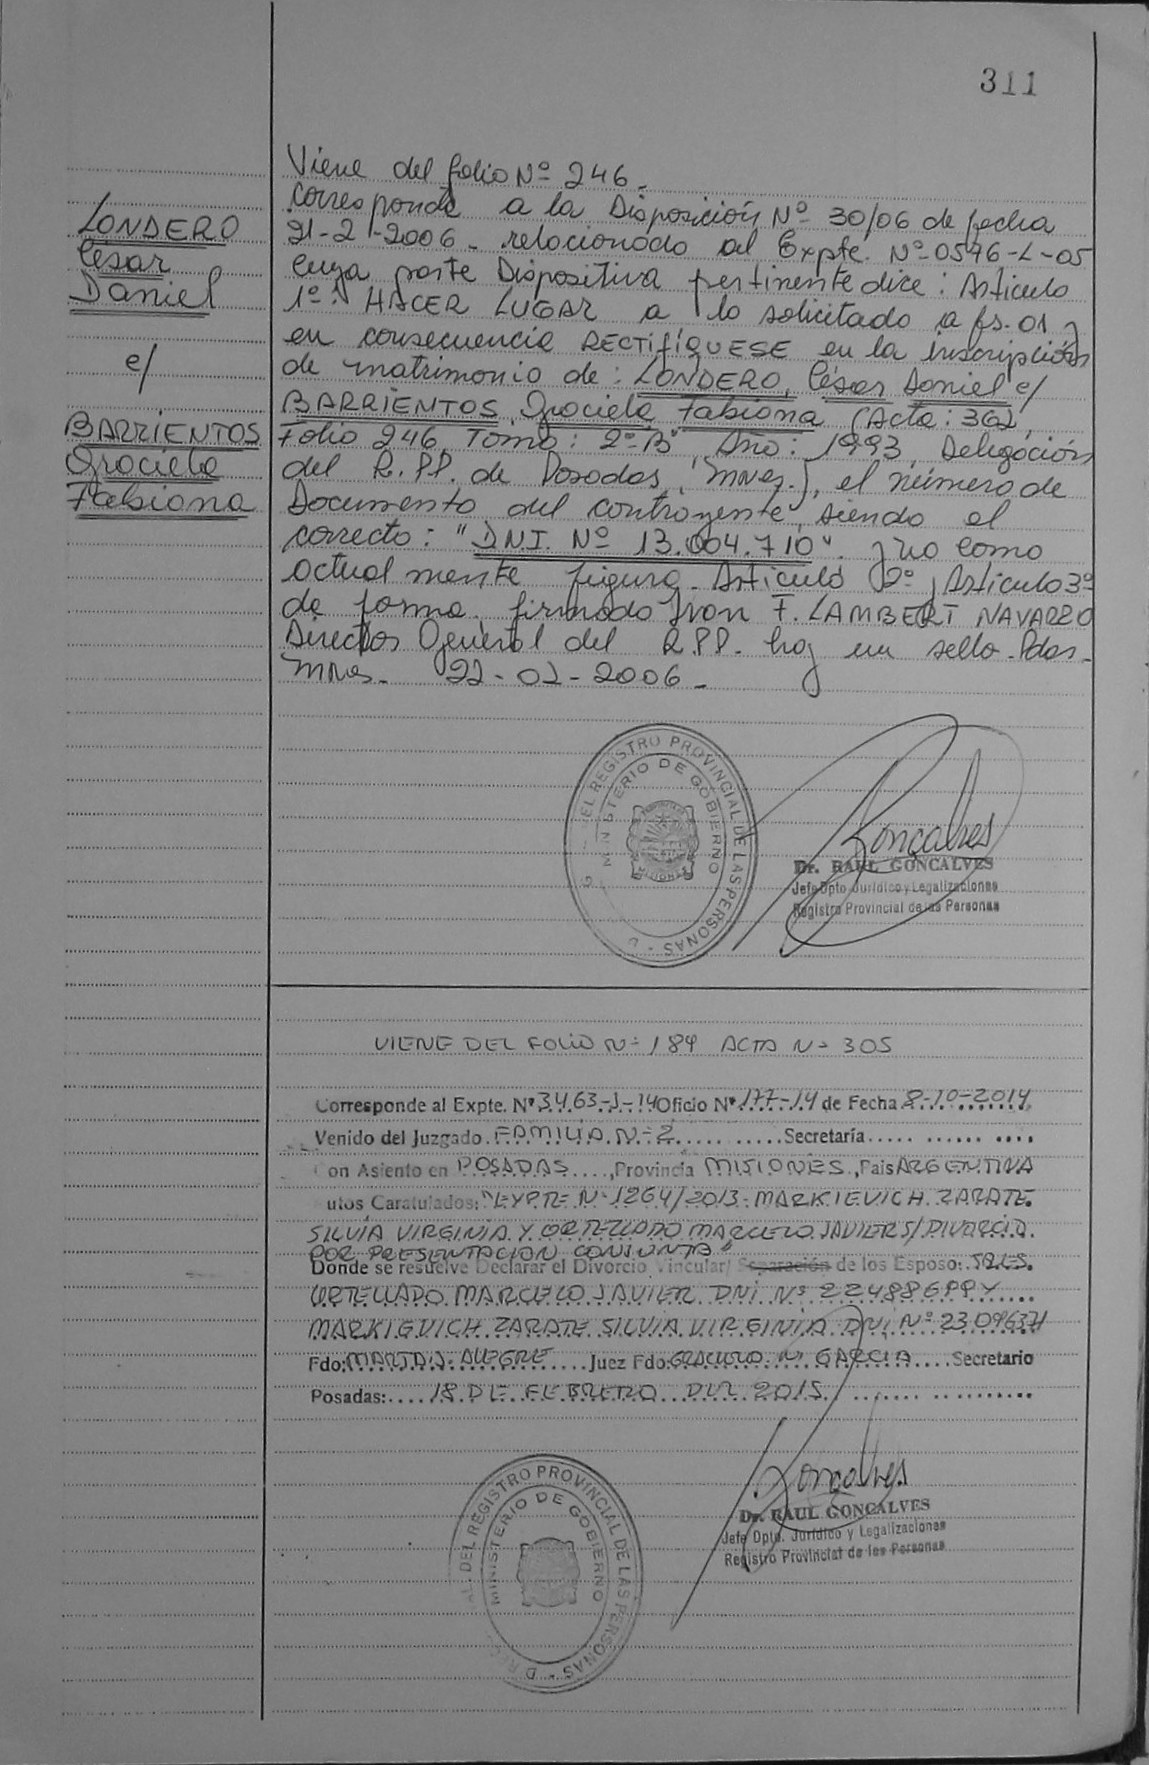 311
LONDERO
César
Daniel
c/
BARRIENTOS
Graciela
Fabiana
Viene del folio Nº 246.
Corresponde a la Disposición Nº 30/06 de fecha
21-2-2006 - relacionado al Expte. Nº 0546-L-05
cuya parte Dispositiva pertinente dice: Artículo
1º: HACER LUGAR a lo solicitado a fs. 01 y
en consecuencia RECTIFÍQUESE en la inscripción
de matrimonio de: LONDERO, César Daniel c/
BARRIENTOS Graciela Fabiana (Acta: 362,
Folio 246, Tomo: 2º"B", Año: 1993, Delegación
del R.PP. de Posadas, Mnes.), el número de
Documento del contrayente, siendo el
correcto: "DNI. Nº 13.004.710". y no como
actualmente figura - Artículo 2º y Artículo 3º
de forma, firmado Ivon F. LAMBERT NAVARRO
Director General del R.PP. hay un sello - Pdas -
Mnes. - 22-02-2006.-
G EL REGISTRO PROVINCIAL DE LAS PERSONAS - D
MINISTERIO DE GOBIERNO
MISIONES
Goncalves
Dr. RAUL GONCALVES
Jefe Dpto. Jurídico y Legalizaciones
Registro Provincial de las Personas
VIENE DEL FOLIO Nº 184 ACTA Nº 305
Corresponde al Expte. Nº 3463-J-14 Oficio Nº 177-14 de Fecha 8-10-2014
Venido del Juzgado FAMILIA Nº 2 Secretaría
on Asiento en POSADAS, Provincia MISIONES, Pais ARGENTINA
utos Caratulados: "EXPTE Nº 1264/2013 - MARKIEVICH ZARATE
SILVIA VIRGINIA Y ORTELLADO MARCELO JAVIER S/ DIVORCIO
POR PRESENTACION CONJUNTA"
Donde se resuelve Declarar el Divorcio Vincular/ Separación de los Esposo: SRES.
ORTELLADO MARCELO JAVIER DNI Nº 22488699 Y
MARKIEVICH ZARATE SILVIA VIRGINIA DNI Nº 23096371
Fdo: MARTA J. ALEGRE Juez Fdo: GRACIELO N GARCIA Secretario
Posadas: 18 DE FEBRERO DEL 2015
AL DEL REGISTRO PROVINCIAL DE LAS PERSONAS - D
MINISTERIO DE GOBIERNO
Goncalves
Dr. RAUL GONCALVES
Jefe Dpto. Jurídico y Legalizaciones
Registro Provincial de las Personas